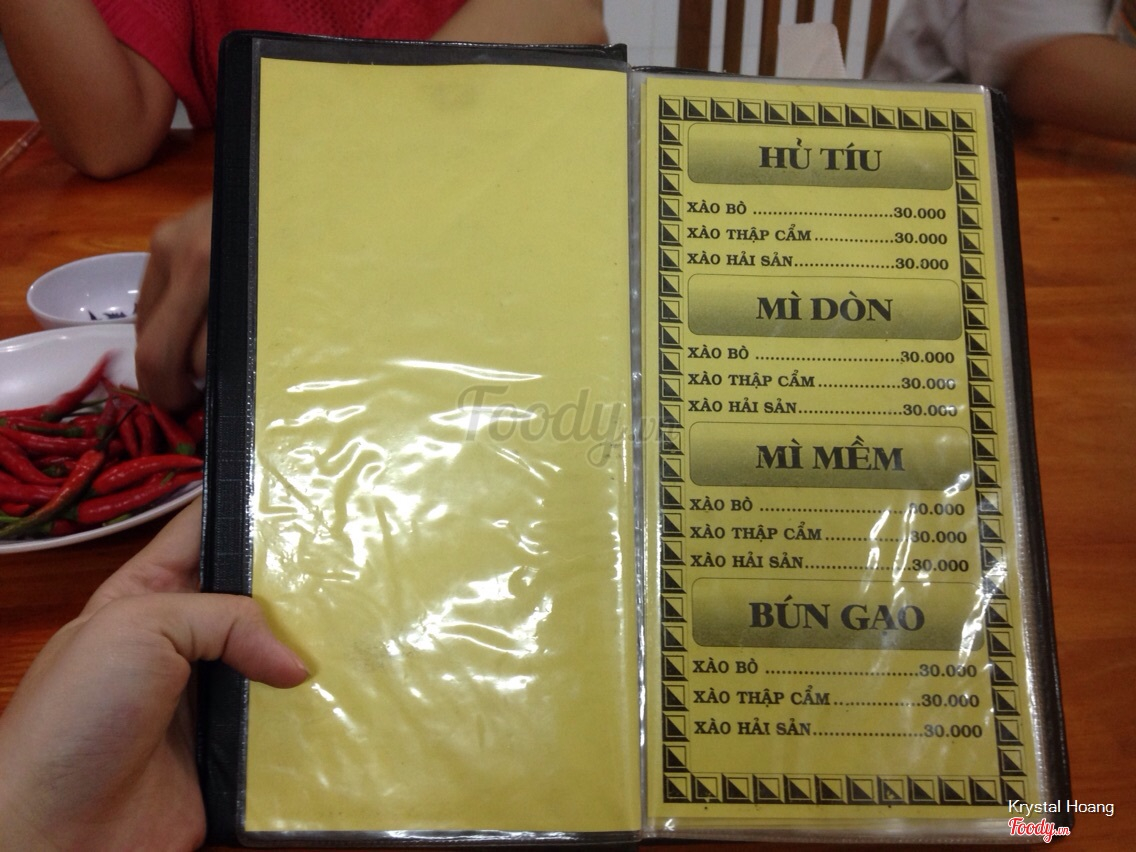 HỦ TÍU
XÀO BÒ ..................................30.000
XÀO THẬP CẨM...................30.000
XÀO HẢI SẢN........................30.000
MÌ DÒN
XÀO BÒ ..................................30.000
XÀO THẬP CẨM...................30.000
XÀO HẢI SẢN........................30.000
MÌ MỀM
XÀO BÒ ..................................30.000
XÀO THẬP CẨM...................30.000
XÀO HẢI SẢN........................30.000
BÚN GẠO
XÀO BÒ ..................................30.000
XÀO THẬP CẨM...................30.000
XÀO HẢI SẢN........................30.000
Foody.vn
Krystal Hoang
Foody.vn